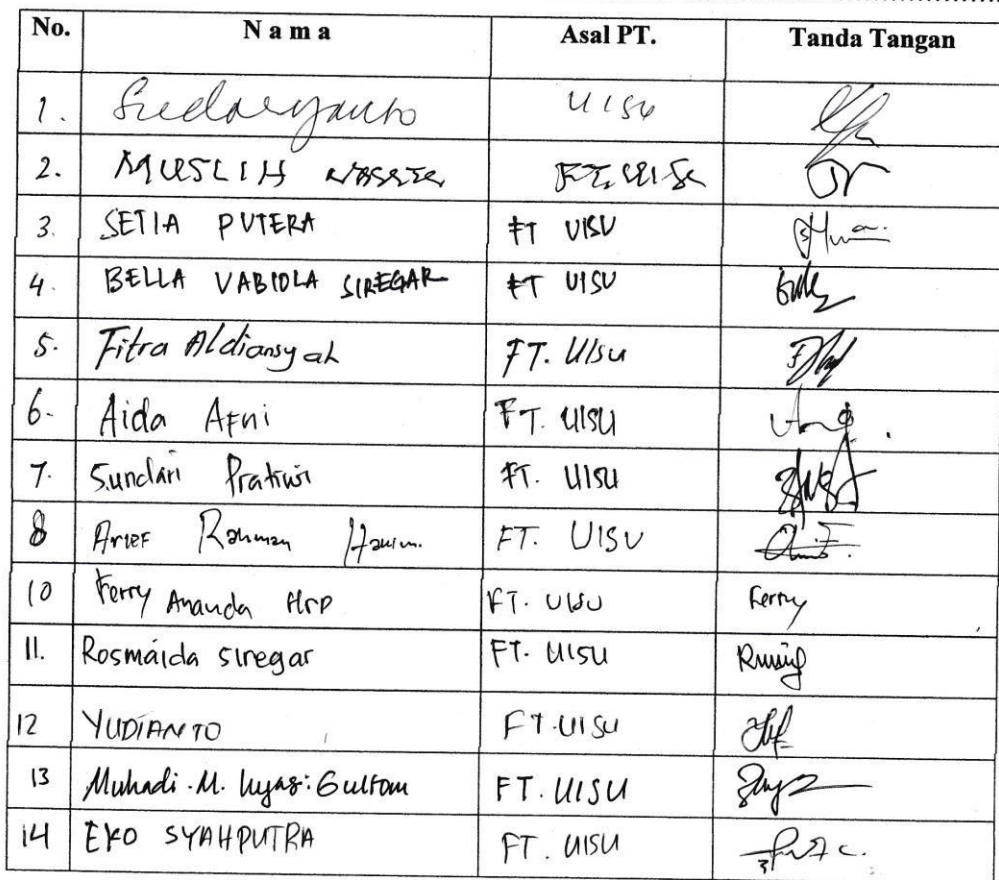 No. N a m a Asal PT. Tanda Tangan
1. Sudaryanto UISU
2. MUSLIH FT. UISU
3. SETIA PUTERA FT UISU
4. BELLA VABIOLA SIREGAR FT UISU
5. Fitra Aldiansyah FT. UISU
6. Aida AFni FT. UISU
7. Sundari Pratiwi FT. UISU
8 Arief Rahman Hakim. FT. UISU
10 Ferry Ananda Hrp FT. UISU Ferry
11. Rosmaida siregar FT. UISU
12 YUDIANTO FT. UISU
13 Muhadi. M. Gultom FT. UISU
14 EKO SYAHPUTRA FT. UISU